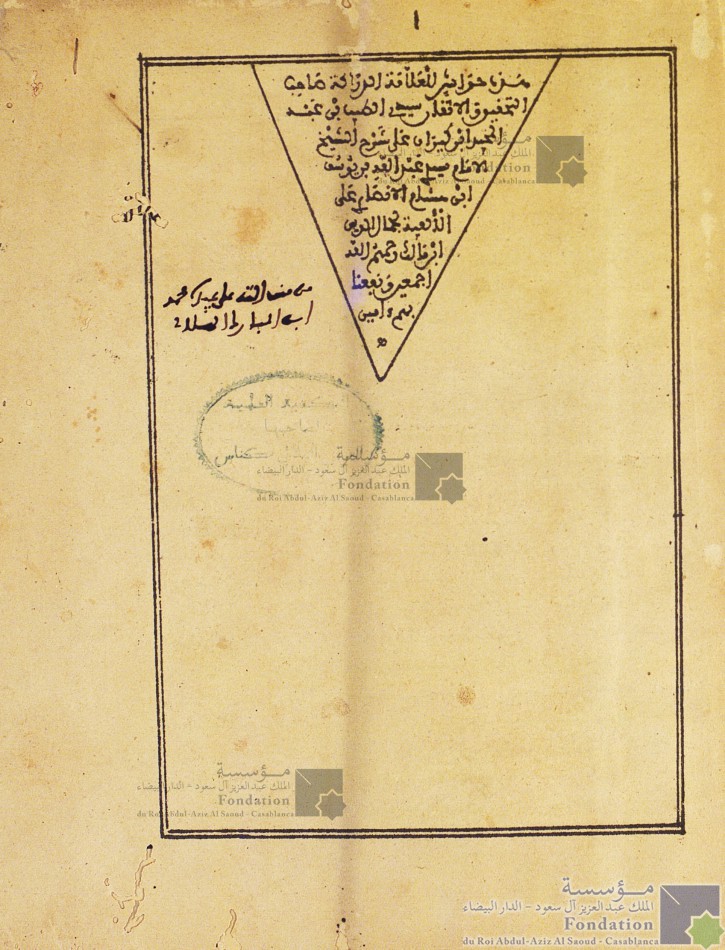 ١
هذه حواشي للعلامة الدراكة صاحب
التحقيق والاتقان سيدي الطيب بن عبد
المجيد ابن كيران على شرح الشيخ
الامام سيدي عبد الله بن يوسف
ابن هشام الانصاري على
الألفية لجمال الدين
ابن مالك رحمهم الله
اجمعين ونفعنا
بهم ءامين
من من الله على عبيده محمد
ابن المبارك
مؤسسة
الملك عبد العزيز آل سعود - الدار البيضاء
Fondation
du Roi Abdul-Aziz Al Saoud - Casablanca
مؤسسة
الملك عبد العزيز آل سعود - الدار البيضاء
Fondation
du Roi Abdul-Aziz Al Saoud - Casablanca
مؤسسة
الملك عبد العزيز آل سعود - الدار البيضاء
Fondation
du Roi Abdul-Aziz Al Saoud - Casablanca
مؤسسة
الملك عبد العزيز آل سعود - الدار البيضاء
Fondation
du Roi Abdul-Aziz Al Saoud - Casablanca